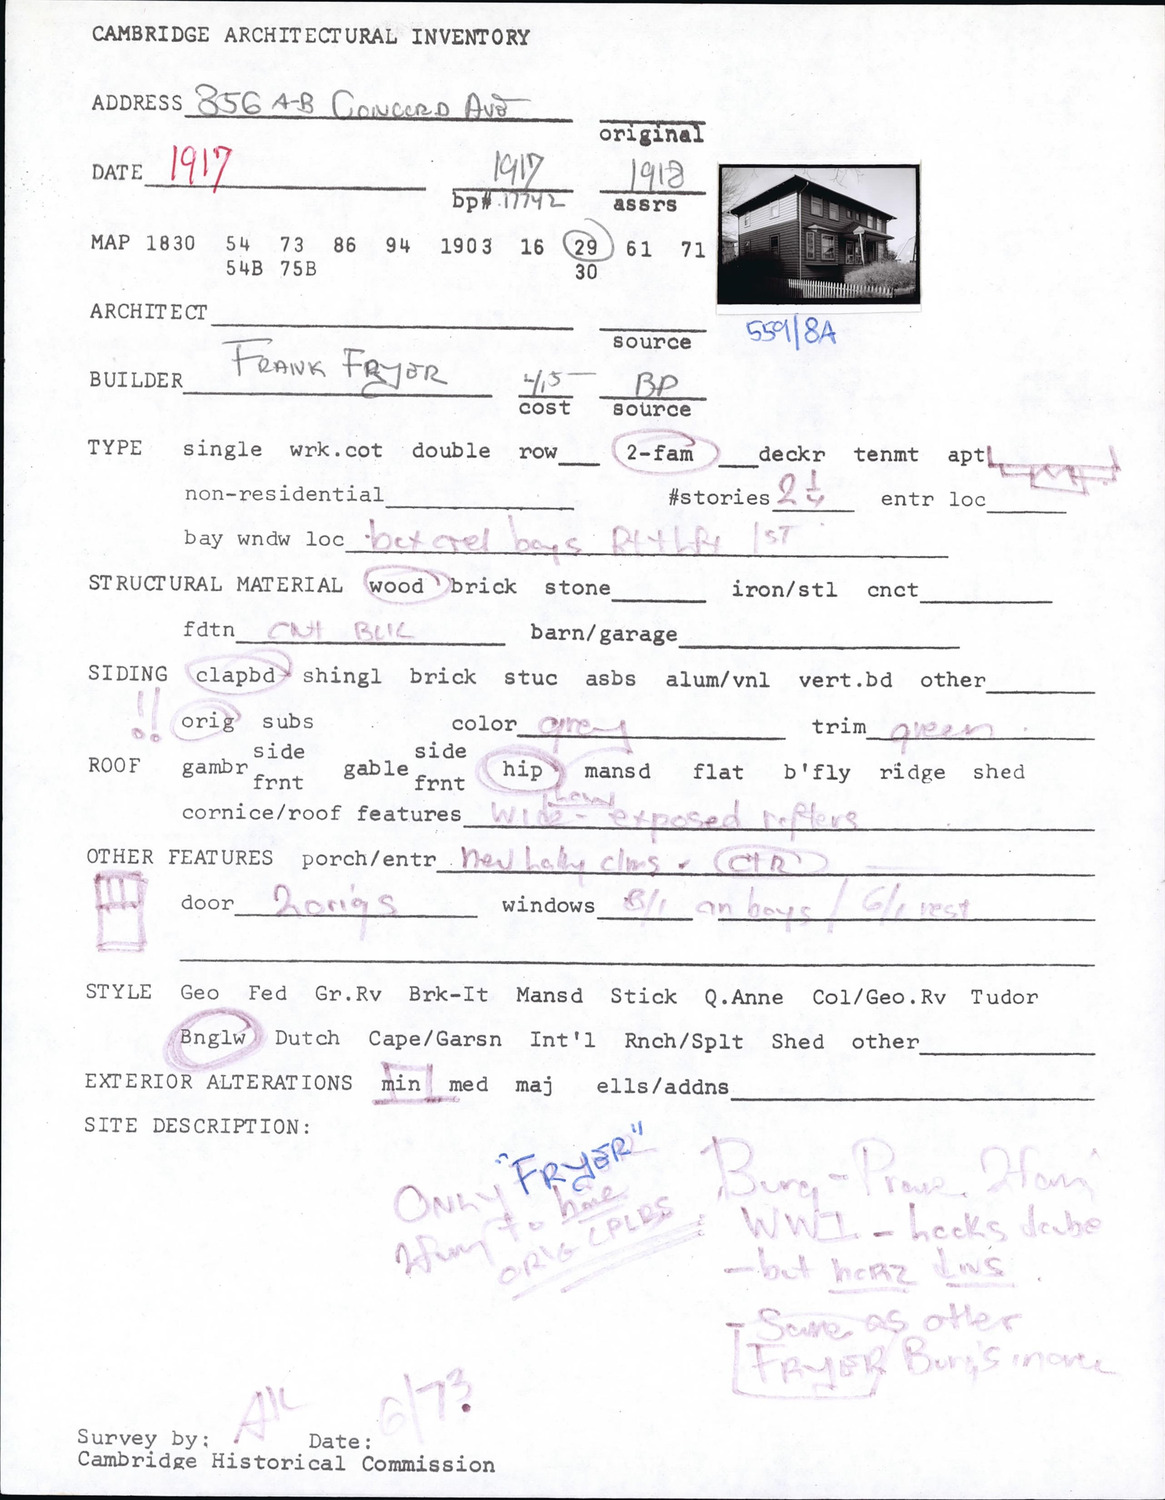 CAMBRIDGE ARCHITECTURAL INVENTORY
ADDRESS 856 A-B CONCORD AVE
original
DATE 1917 1917 1918
bp# 17742 assrs
MAP 1830 54 73 86 94 1903 16 29 61 71
54B 75B 30
ARCHITECT
source
559/8A
BUILDER FRANK FRYER 4,5— BP
cost source
TYPE single wrk.cot double row 2-fam deckr tenmt apt
non-residential #stories 2 1/4 entr loc
bay wndw loc bays Rt + Lft 1ST
STRUCTURAL MATERIAL wood brick stone iron/stl cnct
fdtn CNT BLK barn/garage
SIDING clapbd shingl brick stuc asbs alum/vnl vert.bd other
!! orig subs color gray trim green
side side
ROOF gambr gable hip mansd flat b'fly ridge shed
frnt frnt
cornice/roof features Wide - exposed rafters
OTHER FEATURES porch/entr New CTR
door 2 origs windows 8/1 on bays / 6/1 rest
STYLE Geo Fed Gr.Rv Brk-It Mansd Stick Q.Anne Col/Geo.Rv Tudor
Bnglw Dutch Cape/Garsn Int'l Rnch/Splt Shed other
EXTERIOR ALTERATIONS min med maj ells/addns
SITE DESCRIPTION:
ONLY "FRYER"
2fam to have
ORIG CPLDS
Bung - 2fam
WWI - looks
- but horz lns
- Same as other
FRYER Bung's
AK 6/73
Survey by: Date:
Cambridge Historical Commission